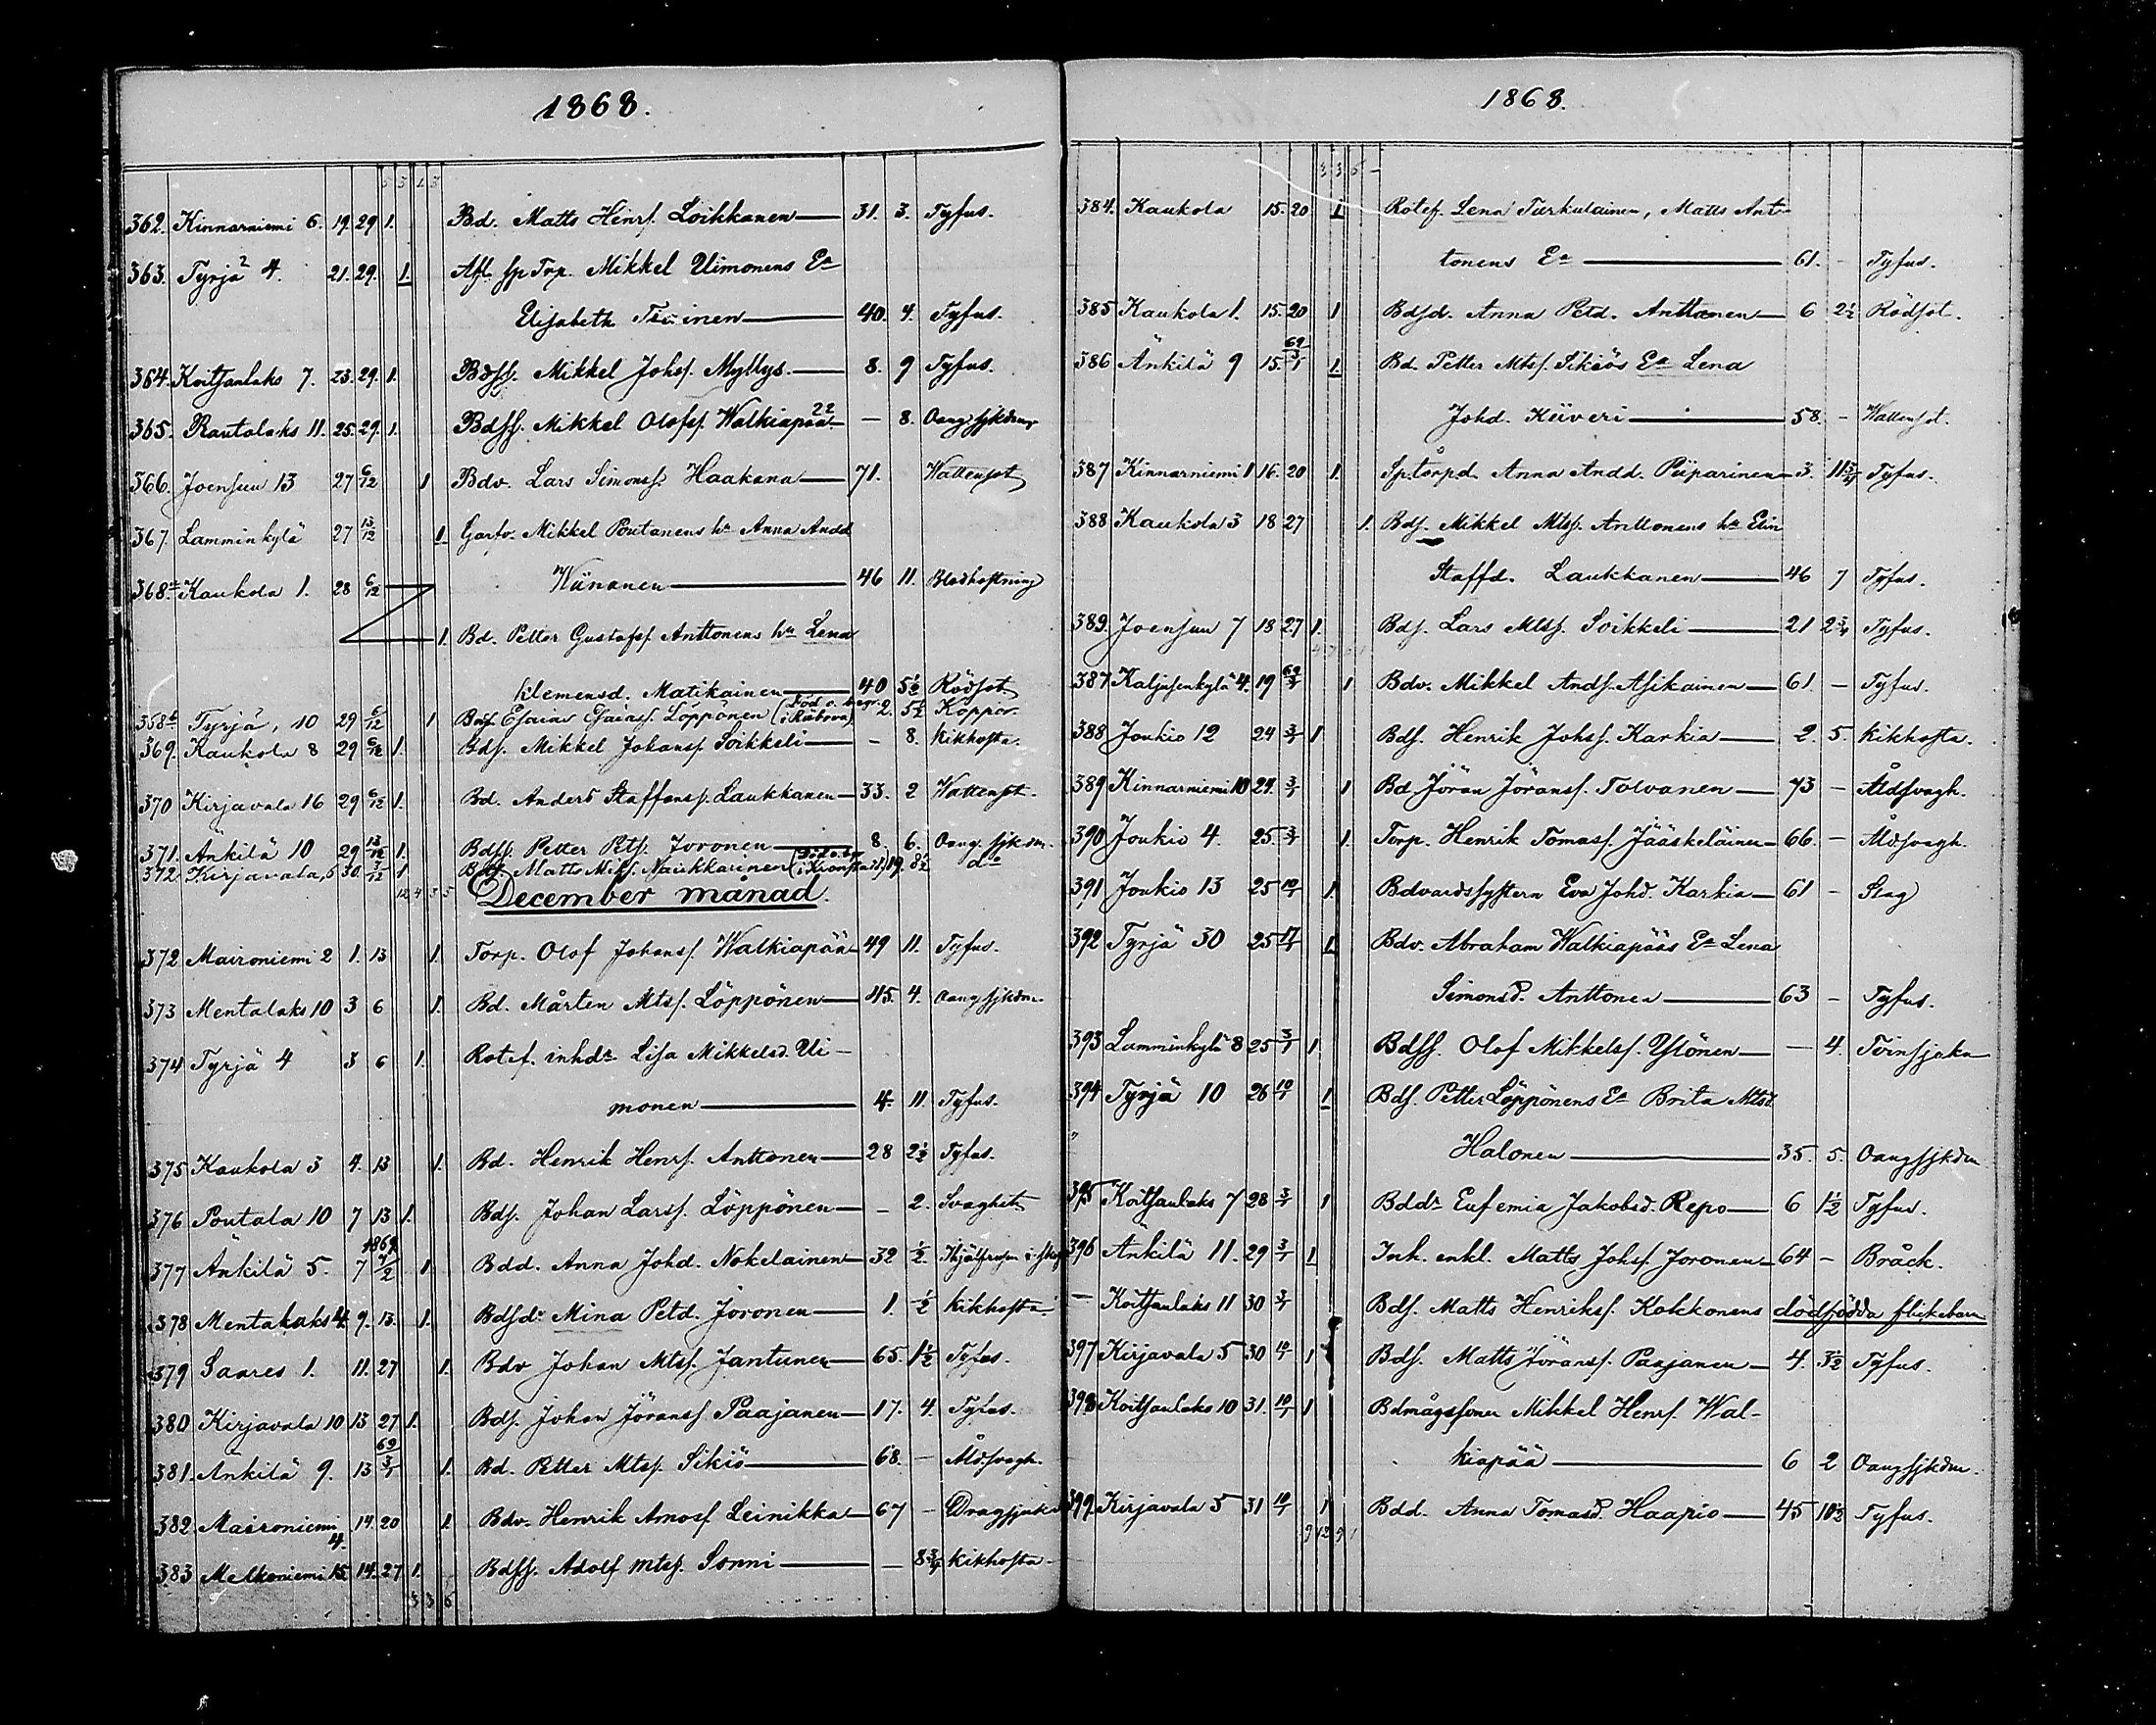 1868.
5 3 2 3
362. Kinnarniemi 6. 19. 29 1. Bd. Matts Henrs. Loikkanen — 31. 3. Tyfus.
363. Tyrjä 4. 21. 29. 1. Afl. sp Trp. Mikkel Uimonens Ea
Elisabeth — 40. 4. Tyfus.
364. Koitsanlaks 7. 23. 29. 1. Bdss. Mikkel Johss. Myllys. — 8. 9 Tyfus.
365. Rautalaks 11. 25. 29. 1. Bdss. Mikkel Olofss. Walkiapää — — 8. Oang. sjkdm
366. Joensuu 13 27 6/12 1 Bdv. Lars Simonss. Haakana — 71. Wattensot
367. Lamminkylä 27 13/12 1. Garfv. Mikkel Poutanens hu Anna Andd
Wünanen — 46 11. Blodhostning
368.a Kaukola 1. 28 6/12 1. Bd. Petter Gustafss. Anttonens hu Lena
Klemensd. Matikainen — 40 5½ Rödsot
368.b Tyrjä, 10 29 6/12 1 Bds. Esaias Esaiass. Löppönen (Död o. begr. i Räbova) 2. 5½ Koppor.
369. Kaukola 8 29 6/12 1. Bds. Mikkel Johanss. Soikkeli — — 8. Kikhosta.
370 Kirjavala 16 29 6/12 1. Bd. Anders Staffanss. Laukkanen — 33. 2 Wattensot.
371. Änkilä 10 29 13/12 1. Bdss. Petter Ptss. Joronen — 8 6. Oang. sjkdm.
372 Kirjavala, 5 30. 3/12 1 Bds. Matts Miks. Naukkarinen (Död o. b. i Kronstadt) 19. 8½ do
12 4 3 5
December månad.
372 Maironiemi 2 1. 13 1. Torp. Olof Johanss. Walkiapää — 49 11. Tyfus.
373 Mentalaks 10 3 6 1. Bd. Mårten Mtss. Löppönen — 45. 4. Oang sjkdm.
374 Tyrjä 4 3 6 1. Rotef. inhdr Lisa Mikkelsd. Ui-
monen — 4. 11. Tyfus.
375 Kaukola 3 4. 13 1. Bd. Henrik Henrs. Anttonen — 28 2½ Tyfus.
376 Poutala 10 7 13 1. Bds. Johan Larss. Löppönen — — 2. Svaghet
377 Änkilä 5. 7 1869 7/2 1 Bdd. Anna Johd. Nokelainen — 32 ½ Ihjälfrusen i skog
378 Mentalaks 4. 9. 13. 1. Bdsdr Mina Petd. Joronen — 1. ½ Kikhosta
379 Saares 1. 11. 27 1. Bdv Johan Mtss. Jantunen — 65. 1½ Tyfus.
380 Kirjavala 10 13 27 1. Bds. Johan Jöranss Paajanen — 17. 4. Tyfus.
381. Änkilä 9. 13 69 3/1 1. Bd. Petter Mtss. Sikiö — 68. — Åldsvagh.
382 Maironiemi 4. 14. 20 1. Bdv. Henrik Amoss Leinikka — 67 — Dragsjuka
383 Melkoniemi 15 14. 27 1. Bdss. Adolf Mtss. Sonni — — 8¾ Kikhosta
3 3 6
1868.
3 3 6 —
384. Kaukola 15. 20 1 Rotef. Lena Turkulainen, Matts Ant-
tonens Ea — 61. — Tyfus.
385 Kaukola 1. 15. 20 1 Bdsd. Anna Petd. Anttonen — 6 2½ Rödsot.
386 Änkilä 9 15. 69 3/1 1. Bd. Petter Mtss. Sikiös Ea Lena
Johd. Kiiveri — 58. — Wattensot.
387 Kinnarniemi 1 16. 20 1. Sp.torpd. Anna Andd. Piiparinen — 3. 11¾ Tyfus.
388 Kaukola 3 18 27 1. Bds. Mikkel Mtss. Anttonens hu Elin
Staffd. Laukkanen — 46 7 Tyfus.
389. Joensuu 7 18 27 1. Bds. Lars Mtss. Soikkeli — 21 2¾ Tyfus.
387 Kaljusenkylä 4. 19 69 3/1 1 Bdv. Mikkel Ands. Asikainen — 61 — Tyfus.
388 Joukio 12 24 3/1 1 Bds. Henrik Johss. Karkia — 2. 5. Kikhosta.
389 Kinnarniemi 10 24. 3/1 1 Bd Jöran Jöranss. Tolvanen — 73 — Åldsvagh.
390 Joukio 4. 25 3/1 1. Torp. Henrik Tomass. Jääskeläinen — 66. — Åldsvagh.
391 Joukio 13 25 10/1 1. Bdvardssystern Eva Johd. Karkia — 61 — Slag
392 Tyrjä 30 25 17/1 1. Bdv. Abraham Walkiapääs Ea Lena
Simonsd. Anttonen — 63 — Tyfus.
393 Lamminkylä 8 25 3/1 1 Bdss. Olof Mikkelss. Ylönen — — 4. Torrsjuka
394 Tyrjä 10 26 10/1 1 Bds. Petter Löppönens Ea Brita Mtsd.
Halonen — 35. 5. Oangsjkdm
395 Koitsanlaks 7 28 3/1 1 Bddr Eufemia Jakobsd. Repo — 6 1½ Tyfus.
396 Änkilä 11. 29 3/1 1 Inh. enkl. Matts Johss. Joronen — 64 — Bråck.
— Koitsanlaks 11 30 3/1 Bds. Matts Henrikss. Kokkonens dödfödda flickebarn
397 Kirjavala 5 30 10/1 1 Bds. Matts Jöranss. Paajanen — 4. 3½ Tyfus.
398 Koitsanlaks 10 31. 10/1 1 Bdmågssonen Mikkel Henrs. Wal-
kiapää — 6 2 Oangsjkdm.
399. Kirjavala 5 31 10/1 1 Bdd. Anna Tomasd. Haapio — 45 10½ Tyfus.
9 12 9 1